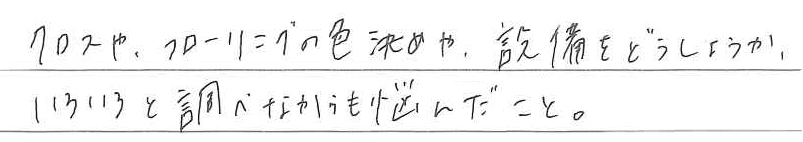 クロスや、フローリングの色決めや、設備をどうしようか、
いろいろと調べながらも悩んだこと。